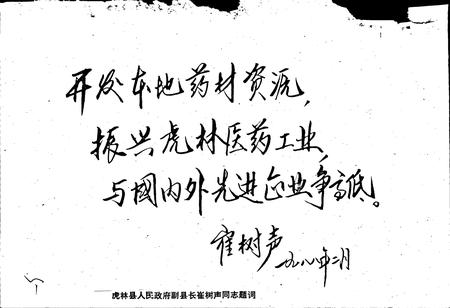 开发本地药材资源，
振兴虎林医药工业，
与國内外先进企业争高低。
崔树声
一九八八年二月
虎林县人民政府副县长崔树声同志题词